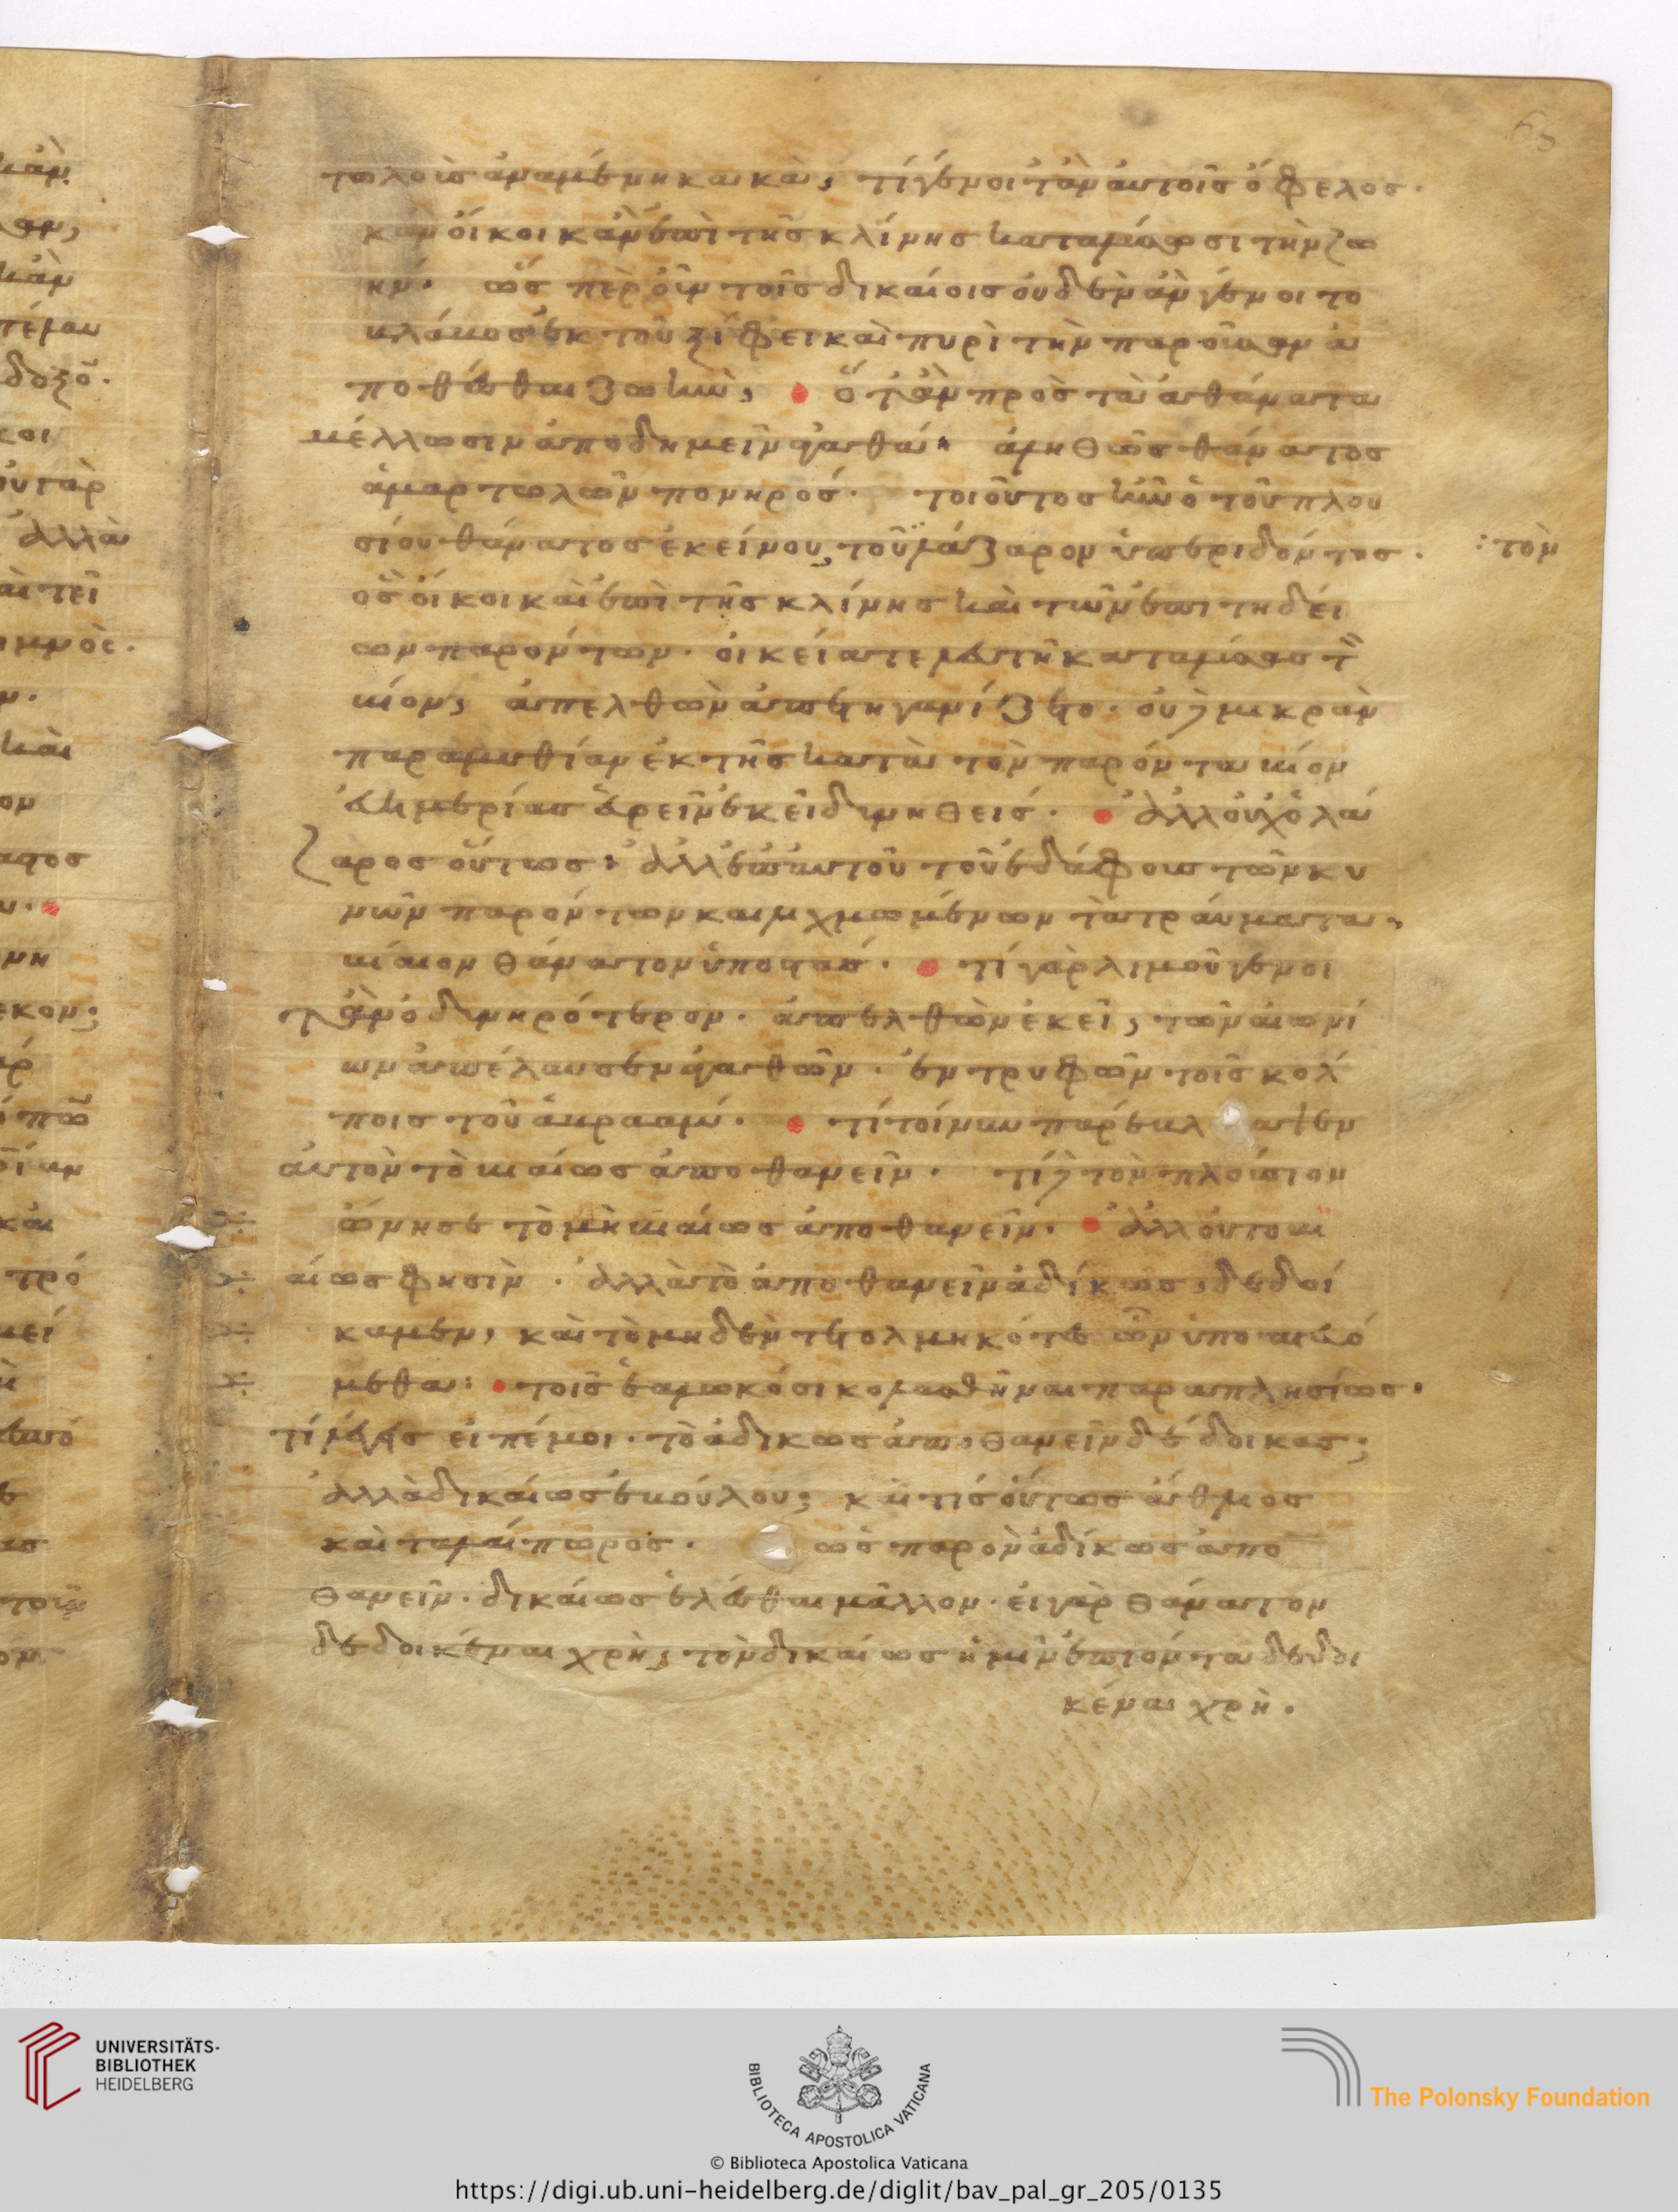 τωλοῖς ἀναμένη κακὰ, τί γένοιτ' ἂν αὐτοῖς ὄφελος.
κἂν οἴκοι κἂν ἐπὶ τῆς κλίνης καταλύσωσι τὴν ζω
ήν. ὥσπερ οὖν τοῖς δικαίοις οὐδὲν ἂν γένοιτο
βλάβος ἐκ τοῦ ξίφει καὶ πυρὶ τὴν παροῦσαν ἀ
ποθέσθαι ζωὴν, ὅταν πρὸς τὰ ἀθάνατα
μέλλωσιν ἀποδημεῖν ἀγαθά. ἀληθῶς θάνατος
ἁμαρτωλῶν πονηρός. τοιοῦτος ἦν ὁ τοῦ πλου
σίου θάνατος ἐκείνου, τοῦ λάζαρον ὑπεριδόντος. : τὸν
ὃς οἴκοι καὶ ἐπὶ τῆς κλίνης καὶ τῶν ἐπιτηδεί
ων παρόντων. οἰκεία τελευτῆ καταλύσας τὸν
βίον, ἀπελθὼν ἀπετηγανίζετο. οὐδὲ μικρὰν
παραμυθίαν ἐκ τῆς κατὰ τὸν παρόντα βίον
εὐημερίας εὑρεῖν ἐκεῖ δυνηθείς. ἀλλ' οὐχ ὁ λά
ζαρος οὕτως. ἀλλ' ἐπ' αὐτοῦ τοῦ ἐδάφους τῶν κυ
νῶν παρόντων καὶ λιχμωμένων τὰ τραύματα,
βίαιον θάνατον ὑποστάς. τί γὰρ λιμοῦ γένοι
τ' ἂν ὀδυνηρότερον. ἀπελθὼν ἐκεῖ, τῶν αἰωνί
ων ἀπέλαυσεν ἀγαθῶν. ἐντρυφῶν τοῖς κόλ
ποις τοῦ ἀβραάμ. τί τοίνυν παρέβλαψεν
αὐτὸν τὸ βιαίως ἀποθανεῖν. τί δὲ τὸν πλούσιον
ὤνησε τὸ μὴ βιαίως ἀποθανεῖν. ἀλλ' οὐ τὸ βι
αίως φησὶν. ἀλλὰ τὸ ἀποθανεῖν ἀδίκως, δεδοί
καμεν, καὶ τὸ μηδὲν τετολμηκότες ὧν ὑποπτευό
μεθα: τοῖς ἑαλωκόσι κολασθῆναι παραπλησίως.
τί λέγεις εἰπέ μοι. τὸ ἀδίκως ἀποθανεῖν δέδοικας;
ἀλλὰ δικαίως ἐβούλου; καὶ τίς οὕτως ἄθλιος
καὶ ταλαίπωρος. ὡς παρὸν ἀδίκως ἀπο
θανεῖν. δικαίως ἑλέσθαι μᾶλλον. εἰ γὰρ θάνατον
δεδοικέναι χρὴ, τὸν δικαίως ἡμῖν ἐπιόντα δεδοι
κέναι χρὴ.
UNIVERSITÄTS-
BIBLIOTHEK
HEIDELBERG
BIBLIOTECA APOSTOLICA VATICANA
The Polonsky Foundation
© Biblioteca Apostolica Vaticana
https://digi.ub.uni-heidelberg.de/diglit/bav_pal_gr_205/0135